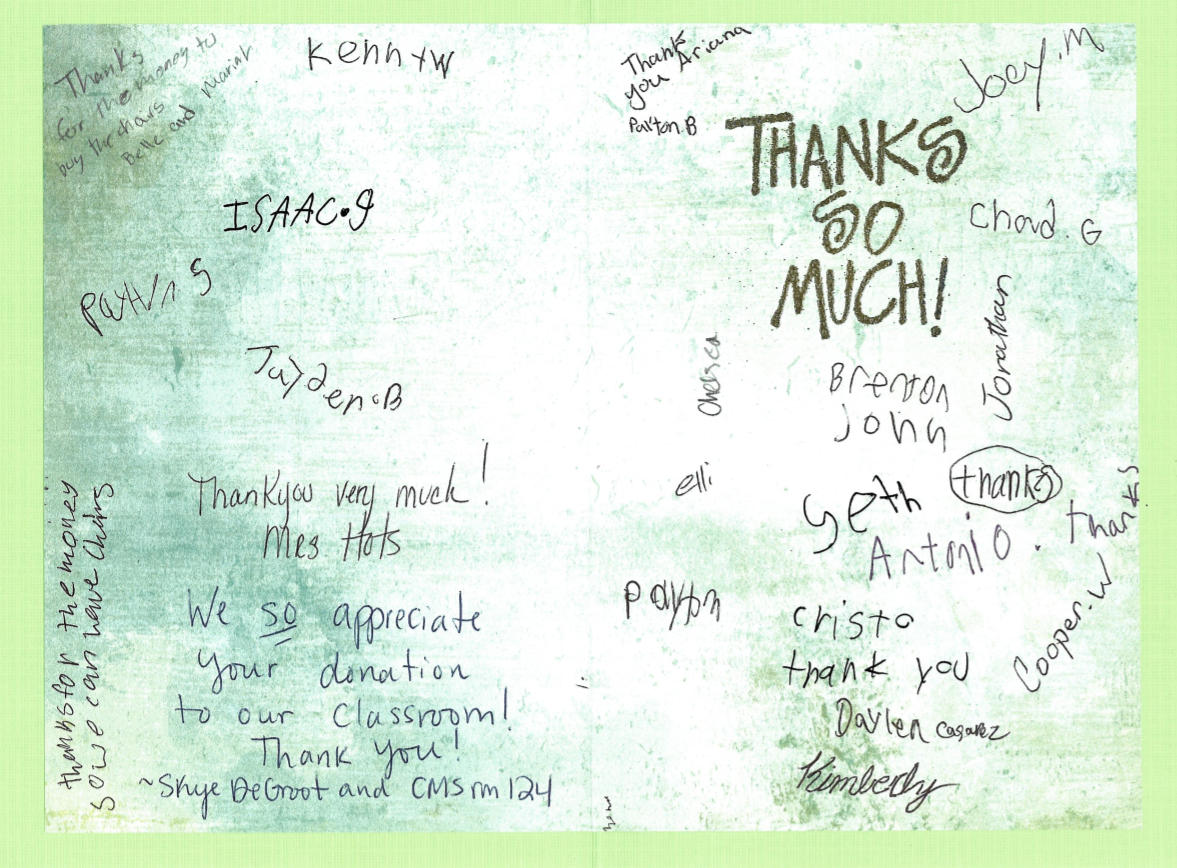 Thanks
for the money to
buy the chairs
Belle and Mariah
Kenny W
ISAAC.g
Jayden.B
Thankyou very much!
We so appreciate
your donation
to our classroom!
Thank you!
~Skye DeGroot and CMS rm 124
thanks for the money
so we can have chairs
Thank
you Ariana
Paiton.B
Joey.M
THANKS
SO
MUCH!
G
Jonathan
Chelsea
Brenton
John
elli
Seth
thanks
Antonio. thanks
Payton
cristo
thank you
Cooper.W
Davien casarez
Kimberly